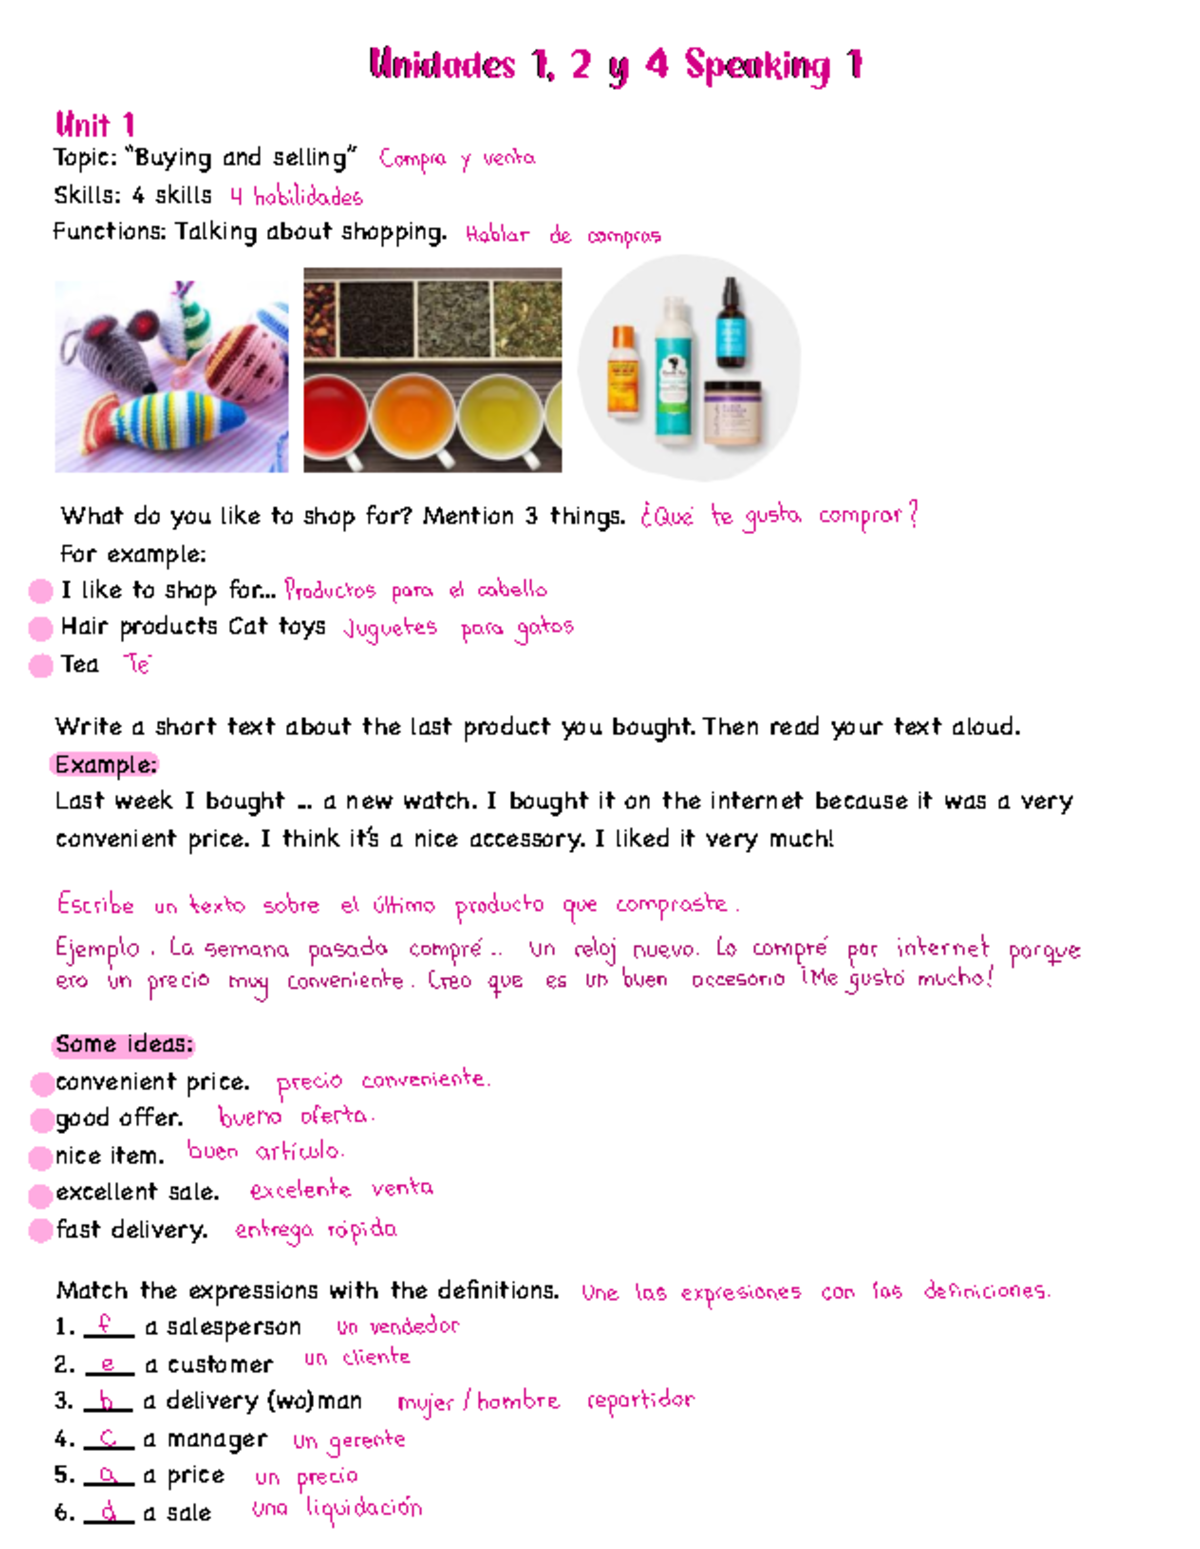 Unidades 1, 2 y 4 Speaking 1
Unit 1
Topic: "Buying and selling" Compra y venta
Skills: 4 skills 4 habilidades
Functions: Talking about shopping. Hablar de compras
What do you like to shop for? Mention 3 things. ¿Qué te gusta comprar?
For example:
I like to shop for... Productos para el cabello
Hair products Cat toys Juguetes para gatos
Tea Té
Write a short text about the last product you bought. Then read your text aloud.
Example:
Last week I bought ... a new watch. I bought it on the internet because it was a very
convenient price. I think it's a nice accessory. I liked it very much!
Escribe un texto sobre el último producto que compraste.
Ejemplo. La semana pasada compré.. un reloj nuevo. Lo compré por internet porque
era un precio muy conveniente. Creo que es un buen accesorio ¡Me gustó mucho!
Some ideas:
convenient price. precio conveniente.
good offer. buena oferta.
nice item. buen artículo.
excellent sale. excelente venta
fast delivery. entrega rápida
Match the expressions with the definitions. Une las expresiones con las definiciones.
1. f a salesperson un vendedor
2. e a customer un cliente
3. b a delivery (wo)man mujer / hombre repartidor
4. c a manager un gerente
5. a a price un precio
6. d a sale una liquidación